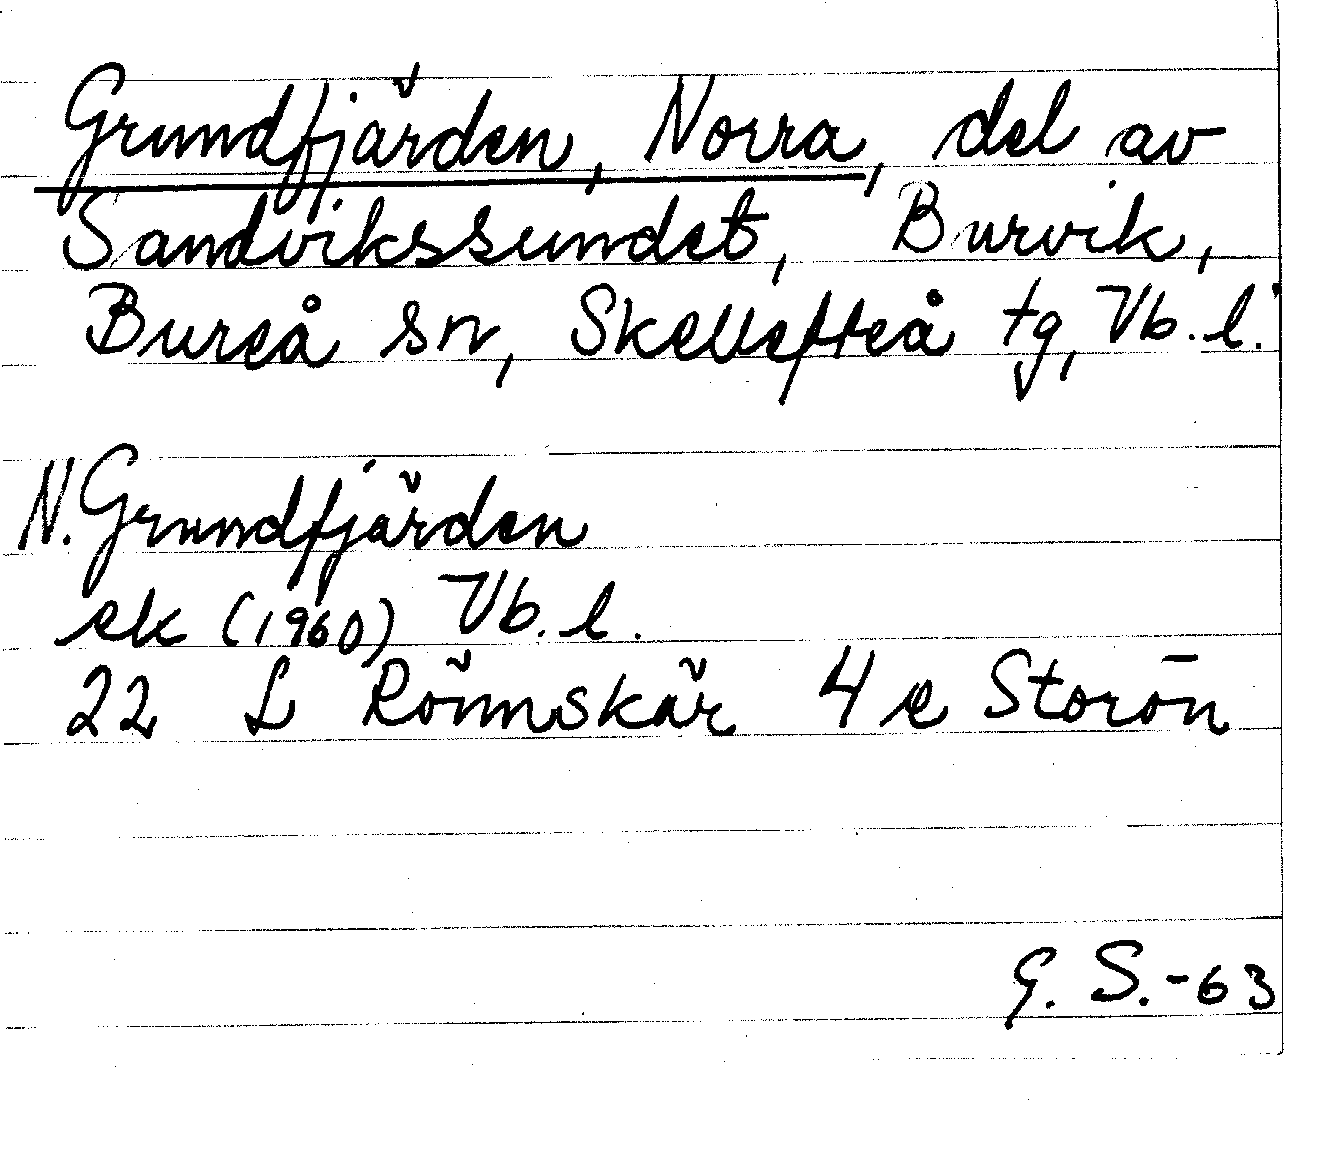 Grundfjärden, Norra, del av
Sandvikssundet, Burvik,
Bureå sn, Skellefteå tg, Vb. l.
N. Grundfjärden
ek (1960) Vb. l.
22 L Rönnskär 4 e Storön
G. S.-63